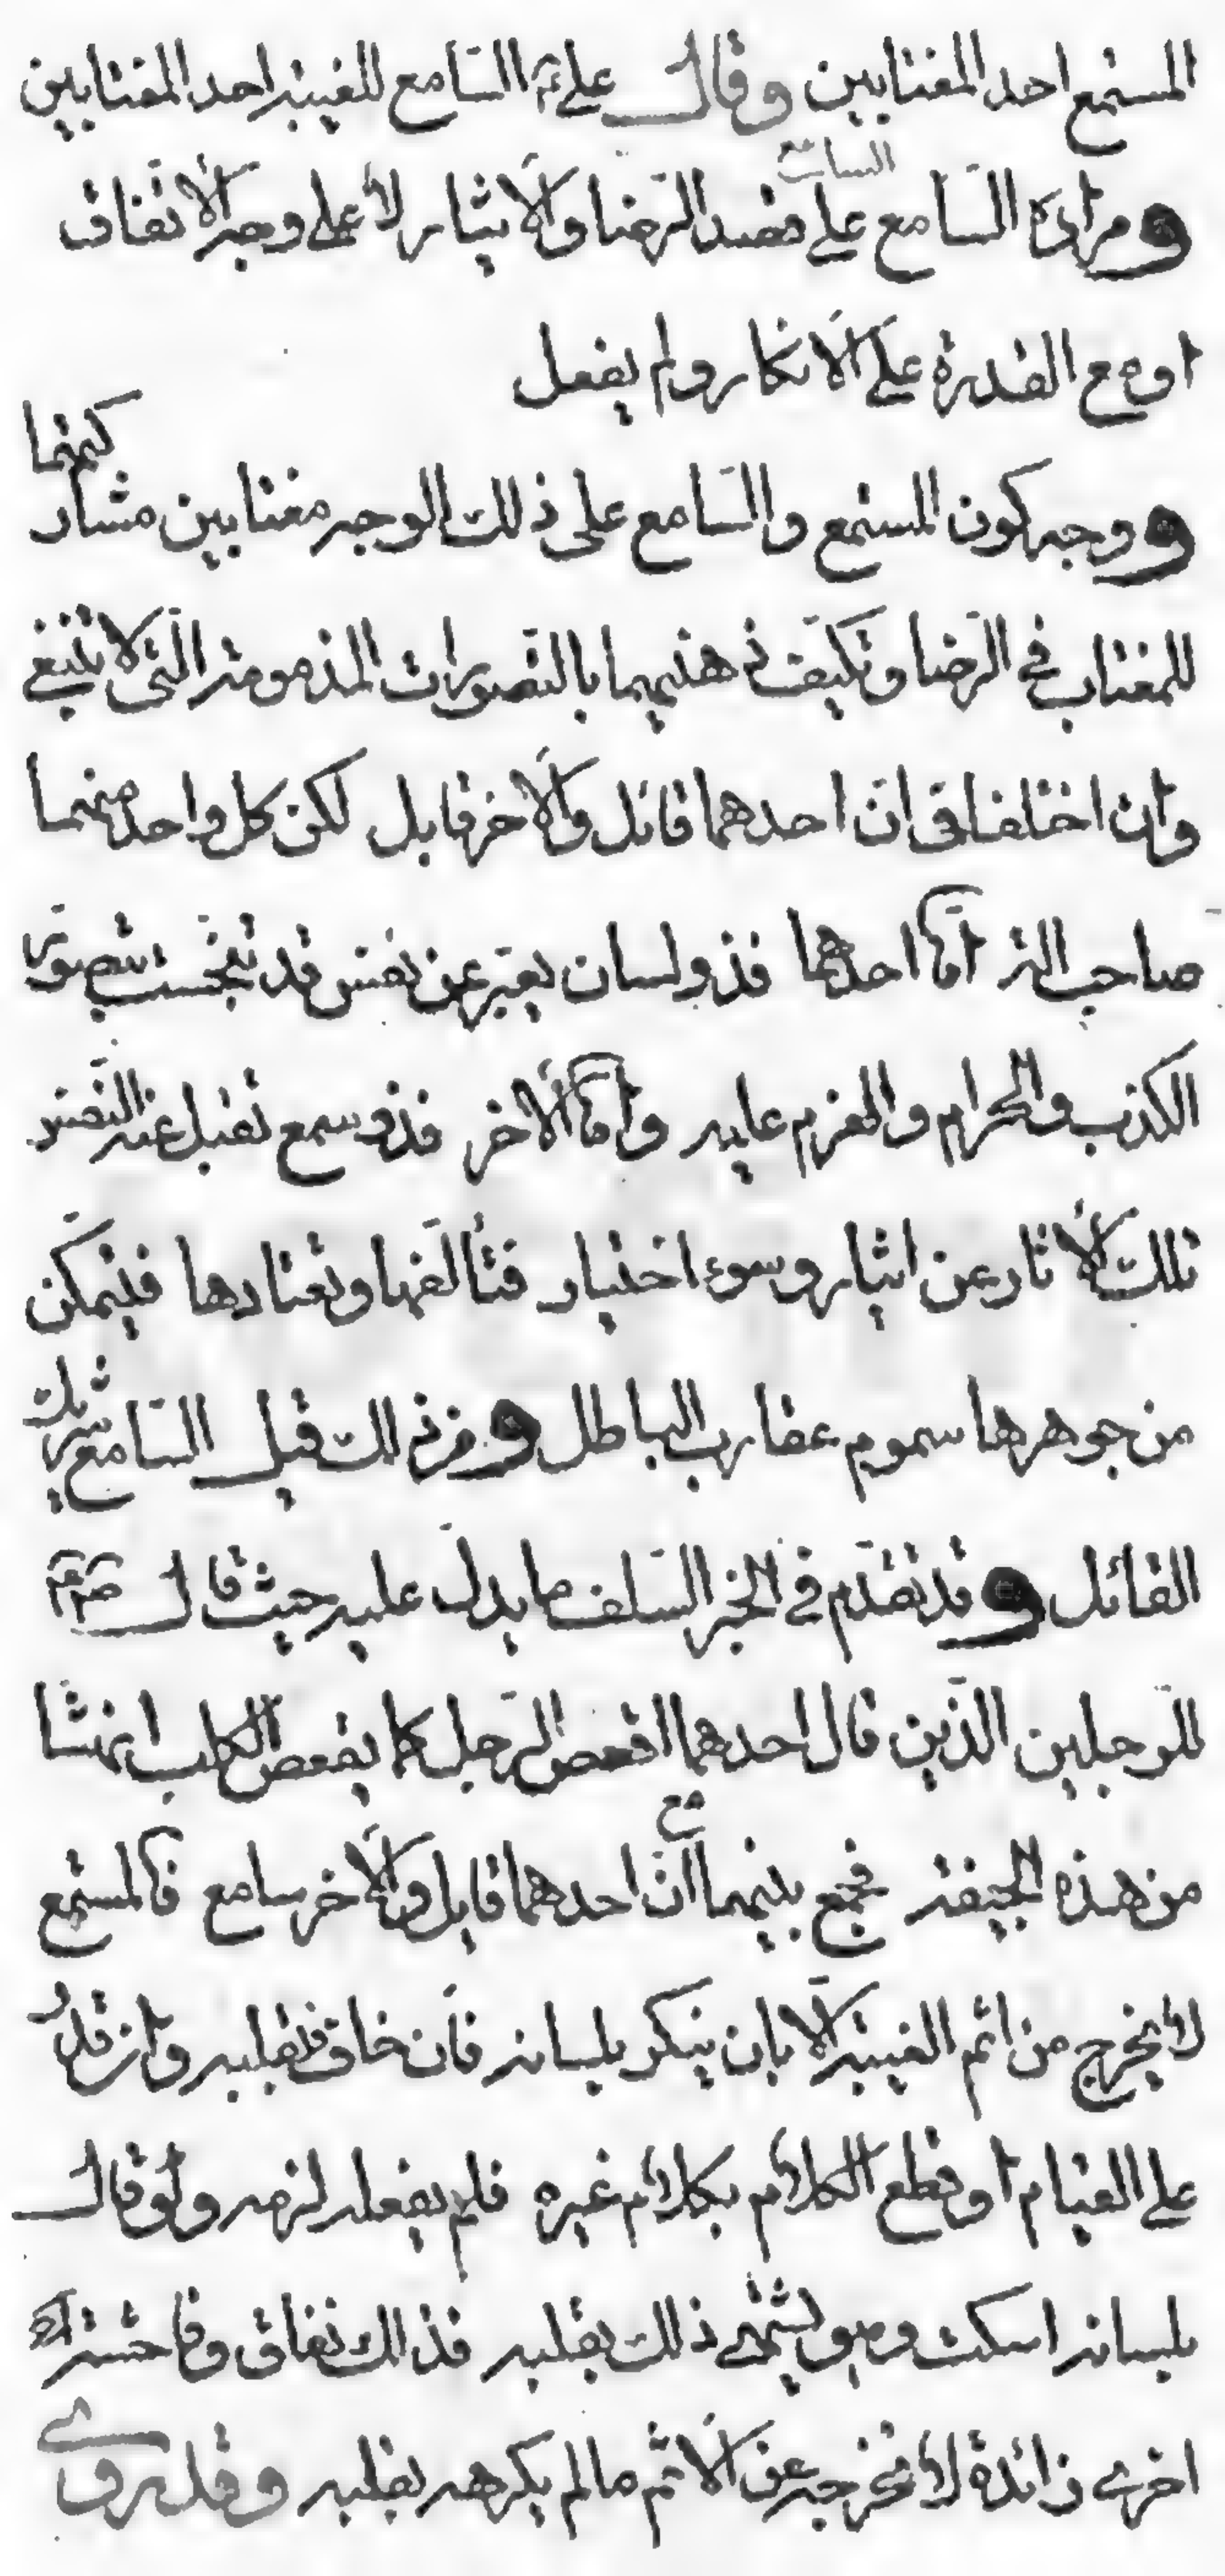 المستمع احد المغتابين وقال علي ع السامع للغيبة احد المغتابين
السامع
ومراده السامع على قصد الرضا والايثار لا على وجه الاتفاق
او مع القدرة على الانكار ولم يفعل
ووجه كون المستمع والسامع على ذلك الوجه مغتابين مشاركتهما
للمغتاب في الرضا وتكيف ذهنيهما بالتصورات المذمومة التي لا تنبغي
وان اختلفا في ان احدهما قائل والاخر قابل لكن كل واحد منهما
صاحب الة اما احدهما فذو لسان يعبر عن نفس قد تنجست بتصور
الكذب والحرام والعزم عليه واما الاخر فذو سمع تقبل عنه النفس
تلك الاثار عن ايثار وسوء اختيار فتألفها وتعتادها فيتمكن
من جوهرها سموم عقارب الباطل ومن ذلك قيل السامع شريك
القائل وقد تقدم في الخبر السلف ما يدل عليه حيث قال
للرجلين الذين قال احدهما اقعص الرجل كما يقعص الكلب انهشا
من هذه الجيفة فجمع بينهما مع ان احدهما قايل والاخر سامع فالمستمع
لا يخرج من اثم الغيبة الا بان ينكر بلسانه فان خاف فبقلبه وان قدر
على القيام او قطع الكلام بكلام غيره فلم يفعله لزمه ولو قال
بلسانه اسكت وهو يشتهي ذلك بقلبه فذلك نفاق وفاحشة
اخرى زائدة لا تخرجه عن الاثم ما لم يكرهه بقلبه وقد روى